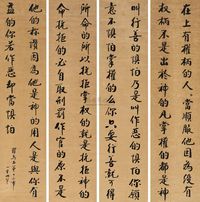 在上有權柄的人人當順服他因為沒有
權柄不是出於神的凡掌權的都是神
叫行善的懼怕乃是叫作惡的懼怕你願
意不懼怕掌權的麼你只要行善就可得
所命的所以抗拒掌權的就是抗拒神的
命抗拒的必自取刑罰作官的原不是
他的稱讚因為他是神的用人是與你有
益的你若作惡卻當懼怕